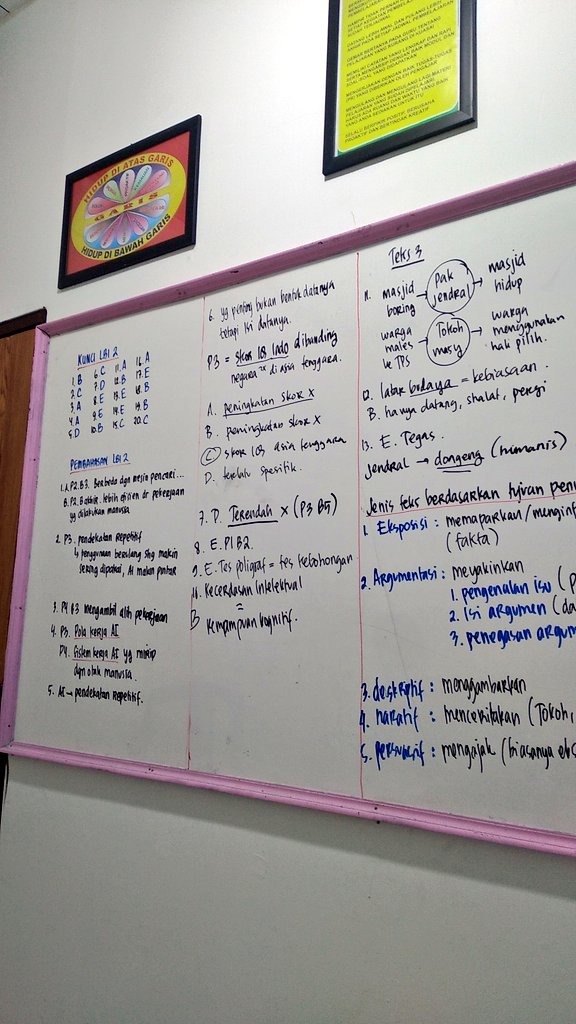 SETIAP JADWAL PEMBELAJARAN
GEMAR BERTANYA PADA GURU TENTANG
PELAJARAN YANG KURANG DI KUASAI
MEMILIKI CATATAN YANG LENGKAP DAN RAPI,
SELALU BERFIKIR POSITIF, BERUSAHA
PROAKTIF DAN BERTINDAK KREATIF
HIDUP DI ATAS GARIS
GARIS
HIDUP DI BAWAH GARIS
KUNCI LBI 2
1. B 6. C 11. A 16. A
2. C 7. D 12. B 17. E
3. A 8. E 13. E 18. B
4. A 9. E 14. E 19. B
5. D 10. B 15. C 20. C
PEMBAHASAN LBI 2
1. A P2. B3. Berbeda dgn mesin pencari...
B. P2. B akhir. lebih efisien dr pekerjaan
yg dilakukan manusia
2. P3. pendekatan repetitif
↳ penggunaan berulang shg makin
sering dipakai, AI makin pintar
3. P4 B3 mengambil alih pekerjaan
4. P3. Pola kerja AI
P4. Sistem kerja AI yg mirip
dgn otak manusia.
5. AI → pendekatan repetitif.
6. yg penting bukan bentuk datanya
tetapi isi datanya.
P3 = skor IQ Indo dibanding
negara ²x di asia tenggara.
A. peningkatan skor X
B. peningkatan skor X
C skor IQ asia tenggara
D. terlalu spesifik.
7. D. Terendah X (P3 B5)
8. E. P1 B2.
9. E. Tes poligraf = tes kebohongan
Kecerdasan Intelektual
=
B Kemampuan kognitif.
Teks 3
11. masjid boring → Pak jendral → masjid hidup
warga males ke TPS → Tokoh masy → warga menggunakan hak pilih.
12. latar budaya = kebiasaan.
B. hanya datang, shalat, pergi
13. E. Tegas.
jendral → dongeng (humanis)
Jenis teks berdasarkan tujuan
1. Eksposisi : memaparkan/
(fakta)
2. Argumentasi : meyakinkan
1. pengenalan isu
2. Isi argumen
3. penegasan
3. deskriptif : menggambarkan
4. naratif : menceritakan (Tokoh,
5. persuasif : mengajak (biasanya